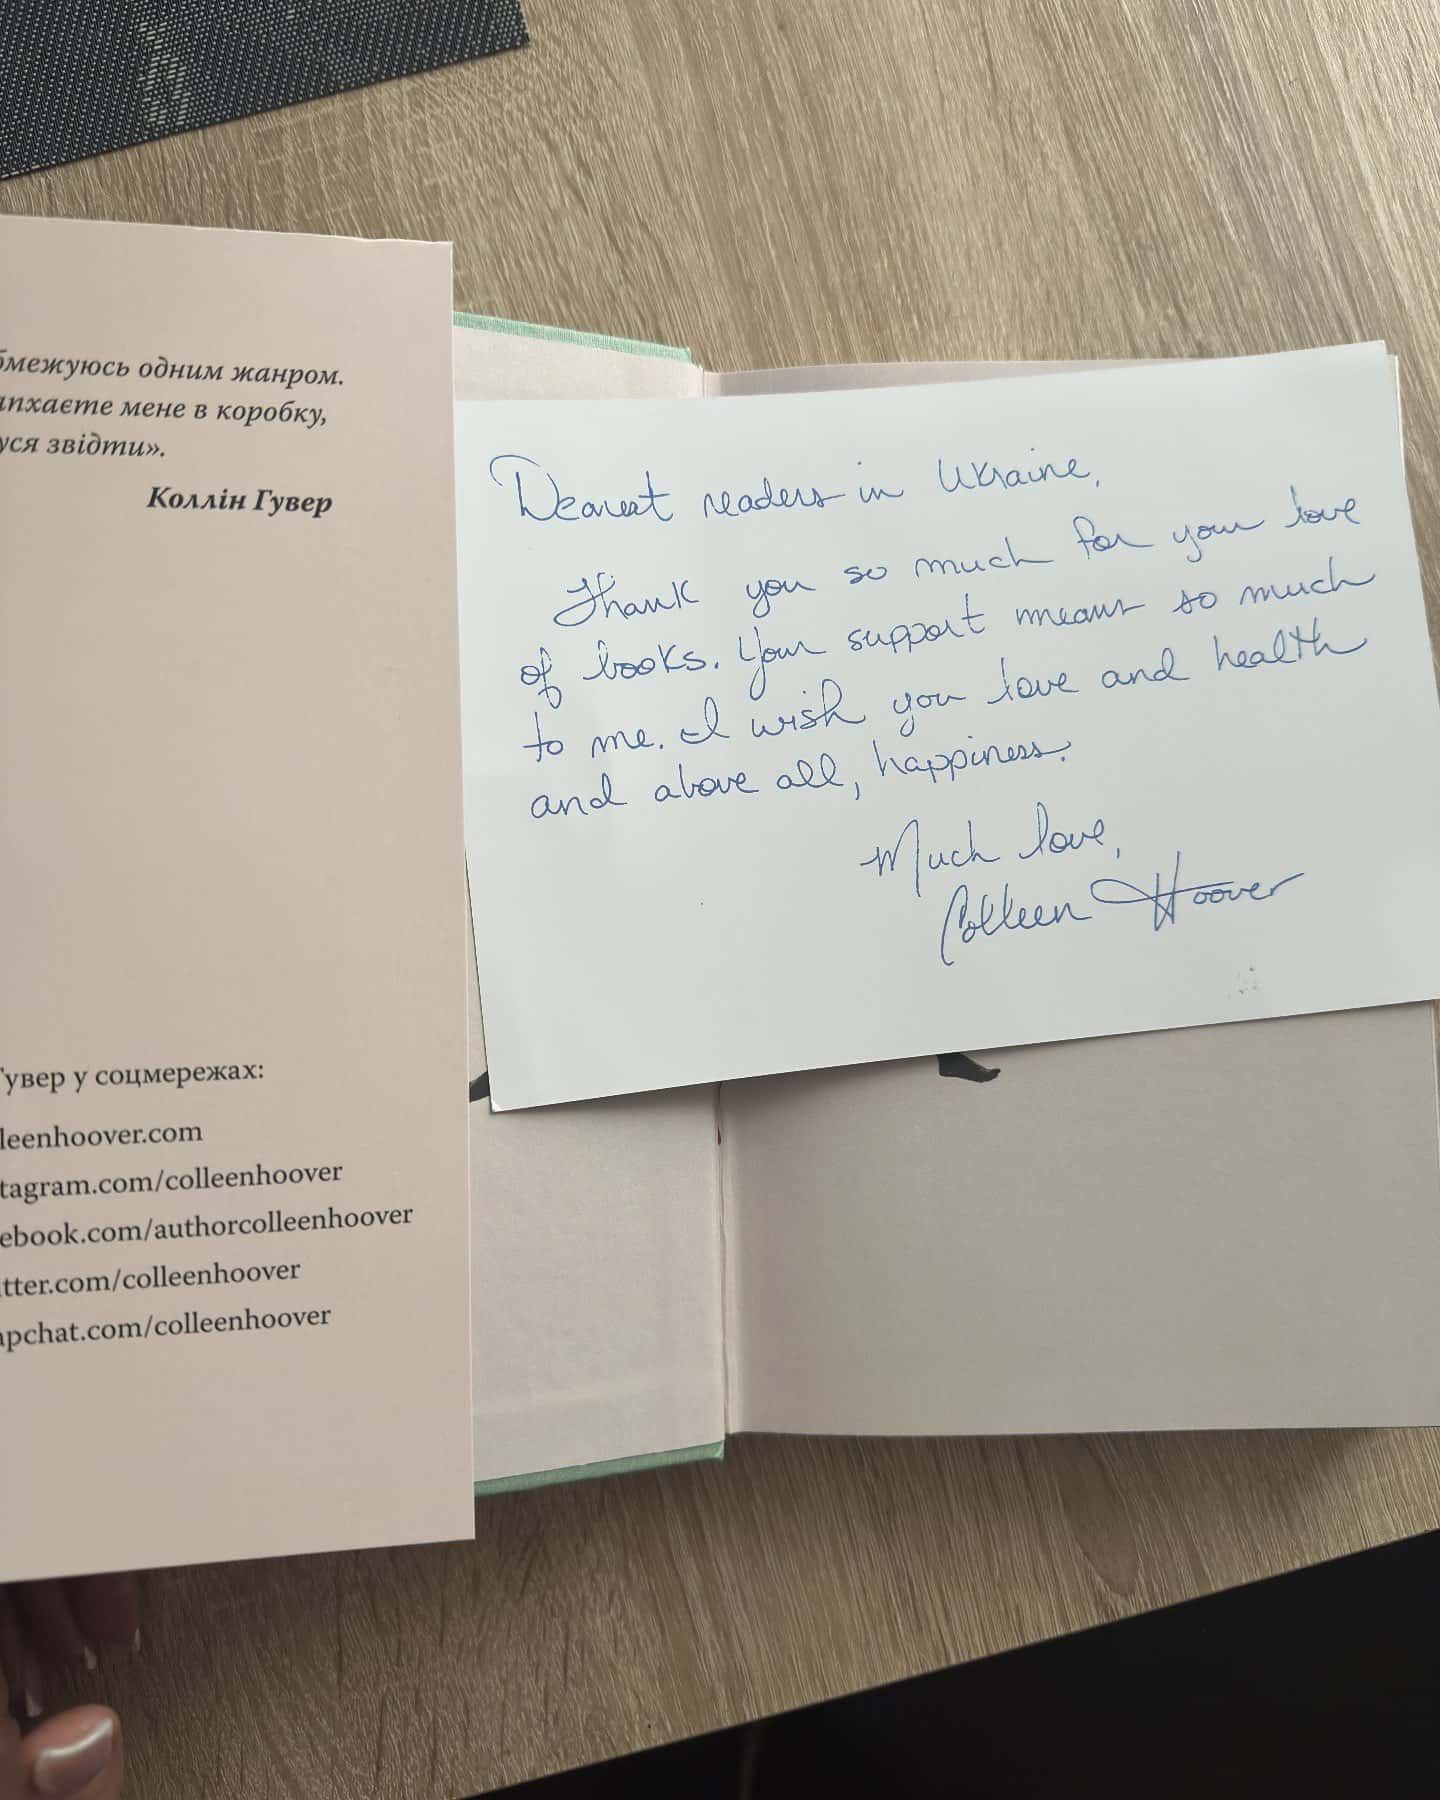 бмежуюсь одним жанром.
пхаєте мене в коробку,
уся звідти».
Коллін Гувер
Гувер у соцмережах:
lleenhoover.com
tagram.com/colleenhoover
ebook.com/authorcolleenhoover
itter.com/colleenhoover
apchat.com/colleenhoover
Dearest readers in Ukraine,
Thank you so much for your love
of books. Your support meant so much
to me. I wish you love and health
and above all, happiness.
Much love,
Colleen Hoover